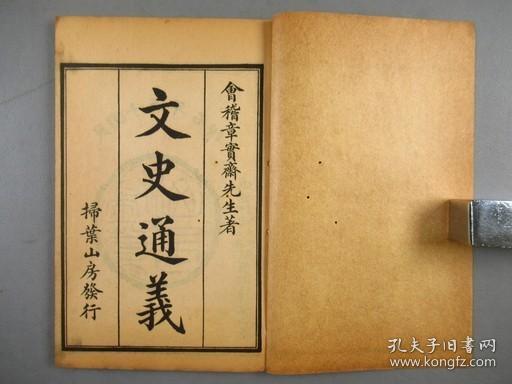 會稽章實齋先生著
文史通義
掃葉山房發行
孔夫子旧书网
www.kongfz.com